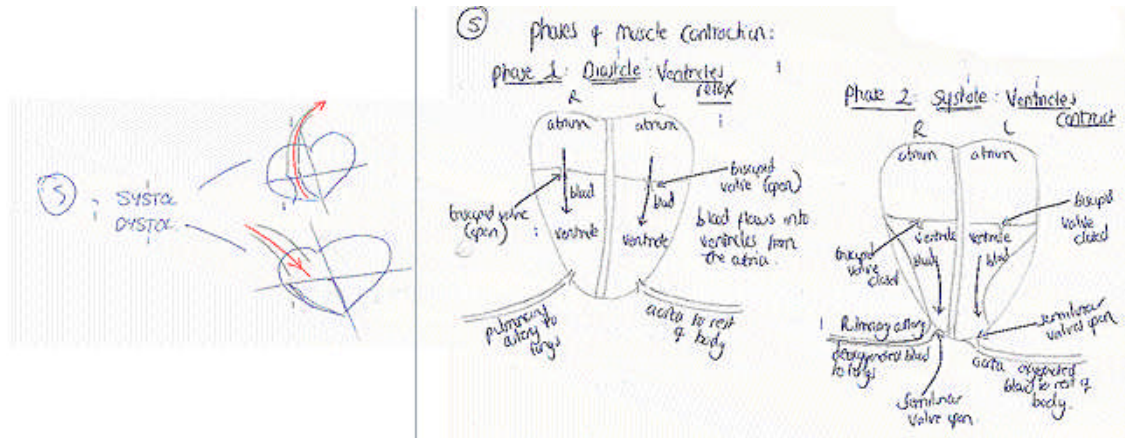 5
SYSTOL
DYSTOL
5
Phases of Muscle Contraction:
Phase 1: Diastole: Ventricles
relax
R
L
atrium
atrium
bicuspid
valve (open)
blood
blood
tricuspid valve
(open)
ventricle
ventricle
blood flows into
ventricles from
the atria.
pulmonary
artery to
lungs
aorta to rest
of body
Phase 2: Systole: Ventricles
contract
R
L
atrium
atrium
bicuspid
valve
closed
ventricle
ventricle
tricuspid
valve
closed
blood
blood
semilunar
valves open
Pulmonary artery
deoxygenated blood
to lungs
aorta oxygenated
blood to rest of
body.
semilunar
valve open